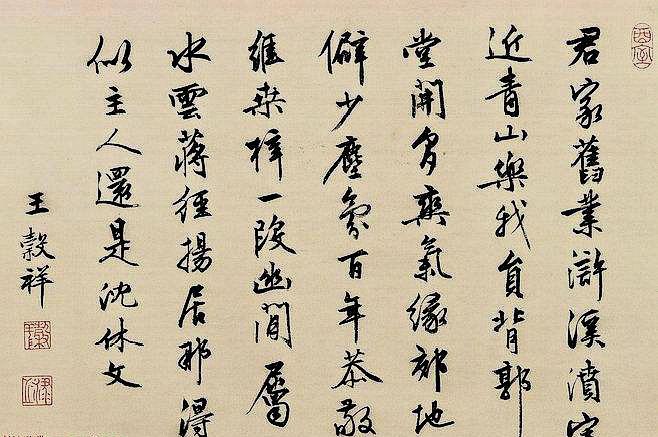 酉室
君家舊業滸溪濆
近青山樂我員背郭
堂開多爽氣緣郊地
僻少塵氛百年恭敬
維桑梓一段幽閒屬
水雲蔣徑揚居那得
似主人還是沈休文
王榖祥